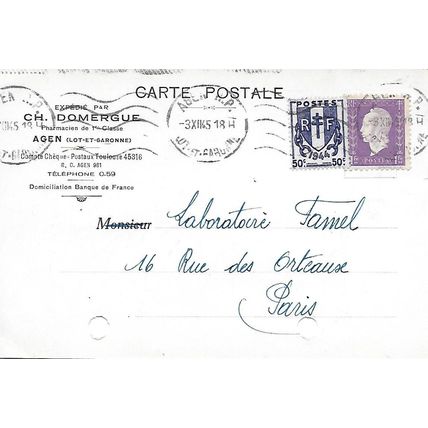 CARTE POSTALE
EXPÉDIÉ PAR
CH. DOMERGUE
Pharmacien de 1re Classe
AGEN (LOT-ET-GARONNE)
Compte Chèque-Postaux Toulouse 45316
R. C. AGEN 981
TÉLÉPHONE 0.59
Domiciliation Banque de France
AGEN R.P.
-3 XII 45 18 H
LOT-ET-GARONNE
POSTES
RF
1944
50c 50c
Monsieur Laboratoire Famel
16 Rue des Orteaux
Paris